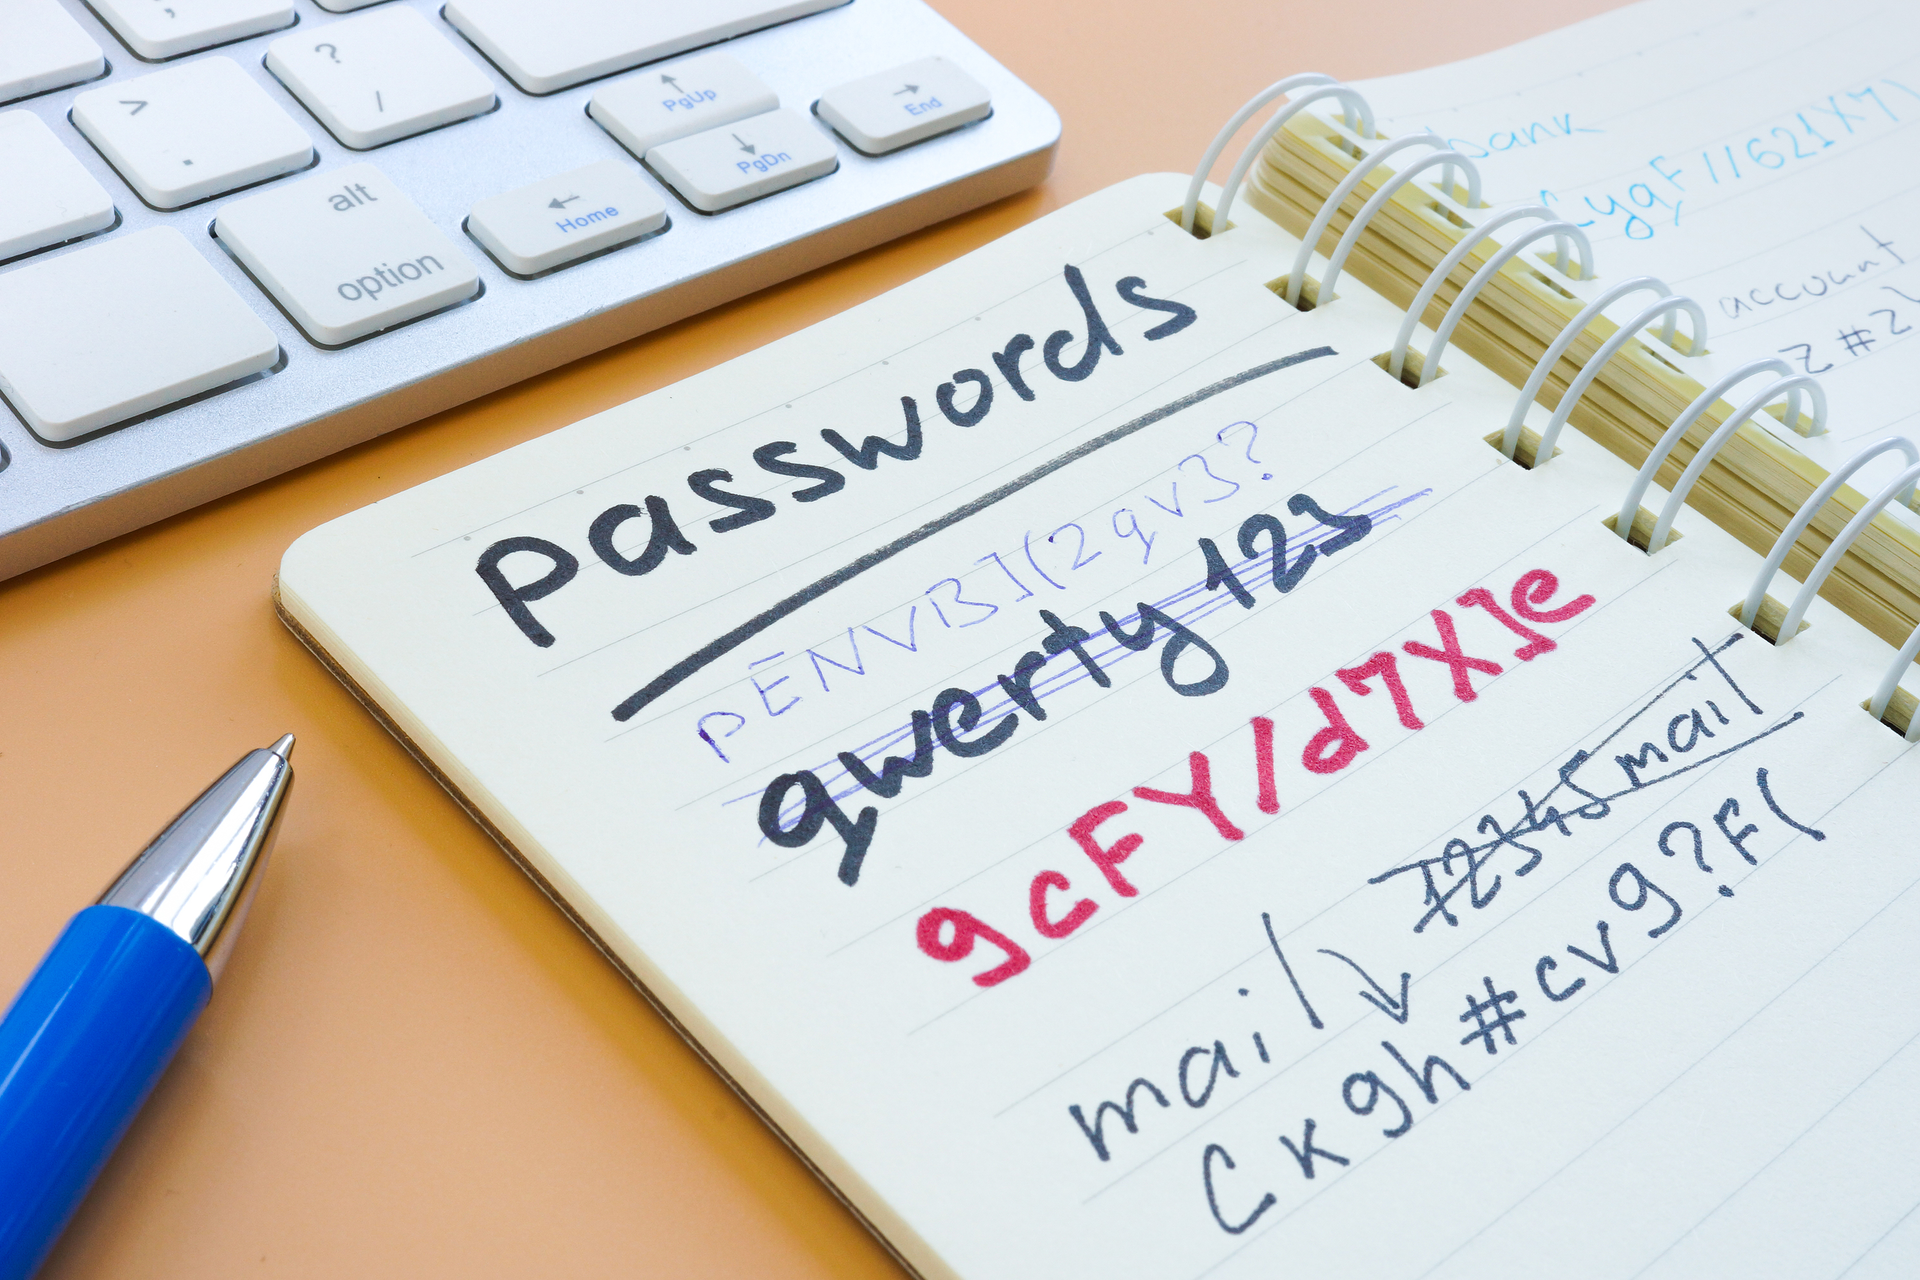 ?
/
>
.
alt
option
PgUp
PgDn
Home
End
passwords
pENVB](2qv3?
qwerty 123
gcFY/d7X]e
12345mail
mail
Ckgh#cv9?F(
bank
account